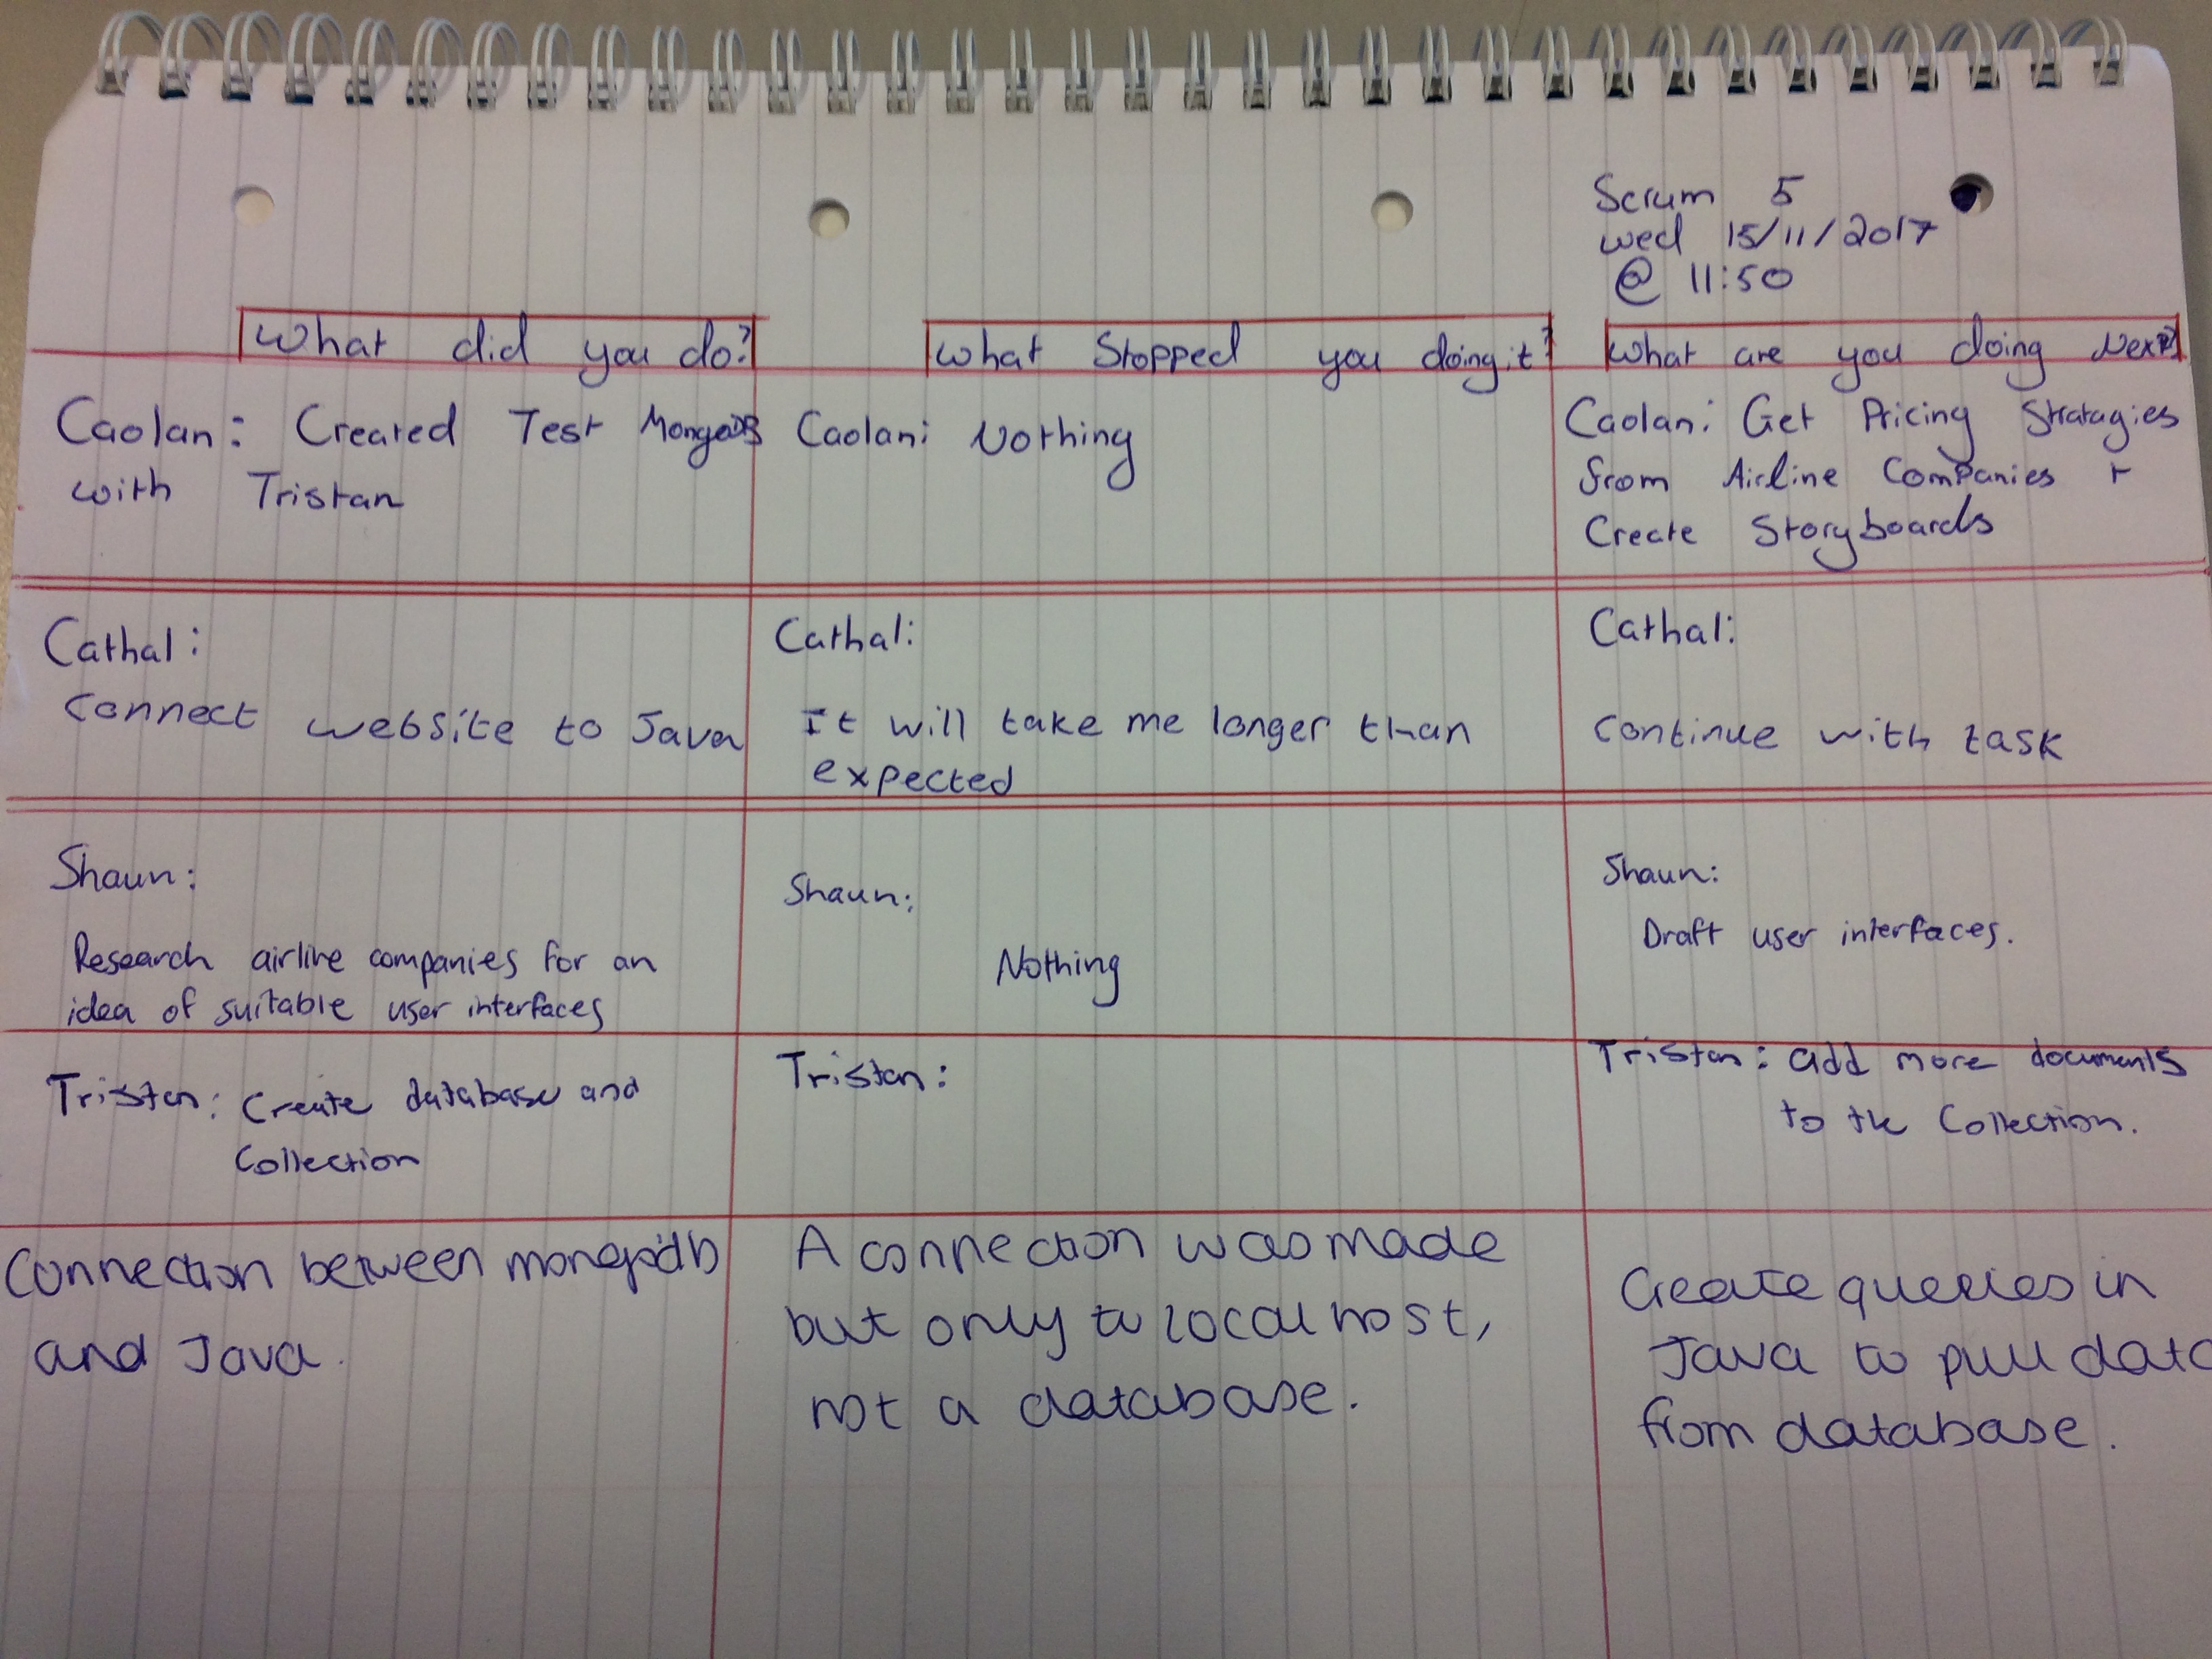 Scrum 5
wed 15/11/2017
@ 11:50
What did you do?
What Stopped you doing it?
What are you doing Next?
Caolan: Created Test MongoDB
with Tristan
Caolan: Nothing
Caolan: Get Pricing Stratagies
from Airline Companies +
Create Storyboards
Cathal:
Connect website to Java
Cathal:
It will take me longer than
expected
Cathal:
Continue with task
Shaun:
Research airline companies for an
idea of suitable user interfaces
Shaun:
Nothing
Shaun:
Draft user interfaces.
Tristan: Create database and
Collection
Tristan:
Tristan: add more documents
to the Collection.
Connection between mongodb
and Java.
A connection was made
but only to localhost,
not a database.
Create queries in
Java to pull data
from database.